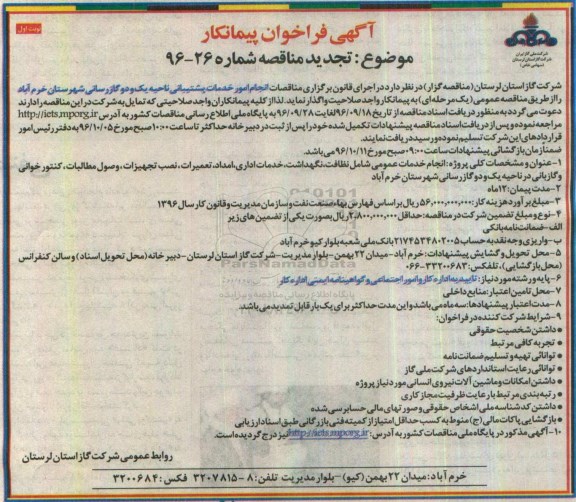 نوبت اول
آگهی فراخوان پیمانکار
موضوع : تجدید مناقصه شماره ۲۶-۹۶
شرکت ملی گاز ایران
شرکت گاز استان لرستان
(سهامی خاص)
شرکت گاز استان لرستان (مناقصه گزار) در نظر دارد در اجرای قانون برگزاری مناقصات انجام امور خدمات پشتیبانی ناحیه یک و دو گازرسانی شهرستان خرم آباد
را از طریق مناقصه عمومی (یک مرحله ای) به پیمانکار واجد صلاحیت واگذار نماید. لذا از کلیه پیمانکاران واجد صلاحیتی که تمایل به شرکت در این مناقصه را دارند
دعوت می گردد به منظور دریافت اسناد مناقصه از تاریخ ۹۶/۰۹/۱۸ لغایت ۹۶/۰۹/۲۸ به پایگاه ملی اطلاع رسانی مناقصات کشور به آدرس http://iets.mporg.ir
مراجعه نموده و پس از دریافت اسناد مناقصه پیشنهادات تکمیل شده خود را پس از ثبت در دبیرخانه حداکثر تا ساعت ۱۰:۰۰ صبح مورخ ۹۶/۱۰/۰۵ به دفتر رئیس امور
قراردادهای این شرکت تسلیم نموده و رسید دریافت نمایند.
ضمناً زمان بازگشائی پیشنهادات ساعت ۰۹:۰۰ صبح مورخ ۹۶/۱۰/۱۱ می باشد.
۱- عنوان و مشخصات کلی پروژه : انجام خدمات عمومی شامل نظافت، نگهداشت، خدمات اداری، امداد، تعمیرات، نصب تجهیزات، وصول مطالبات، کنتور خوانی
و گازبانی در ناحیه یک و دو گازرسانی شهرستان خرم آباد
۲- مدت پیمان : ۱۲ ماه
۳- مبلغ برآورد هزینه کار : ۵۶,۰۰۰,۰۰۰,۰۰۰ ریال بر اساس فهارس بهاء صنعت نفت و سازمان مدیریت و قانون کار سال ۱۳۹۶
۴- نوع و مبلغ تضمین شرکت در مناقصه : حداقل ۲,۸۰۰,۰۰۰,۰۰۰ ریال بصورت یکی از تضمین های زیر
الف- ضمانت نامه بانکی
ب- واریزی وجه نقد به حساب ۲۱۷۴۵۳۴۸۰۲۰۰۵ بانک ملی شعبه بلوار کیو خرم آباد
۵- محل تحویل و گشایش پیشنهادات : خرم آباد - میدان ۲۲ بهمن - بلوار مدیریت - شرکت گاز استان لرستان - دبیرخانه (محل تحویل اسناد) و سالن کنفرانس
(محل بازگشایی)، تلفکس: ۳۳۲۰۰۶۸۳-۰۶۶
۶- پایه و رشته مورد نیاز : تاییدیه اداره کار و امور اجتماعی و گواهینامه ایمنی اداره کار
۷- محل تامین اعتبار : منابع داخلی
۸- مدت اعتبار پیشنهادها: سه ماه می باشد و این مدت حداکثر برای یک بار قابل تمدید می باشد.
۹- شرایط شرکت کننده در فراخوان :
● داشتن شخصیت حقوقی
● تجربه کافی مرتبط
● توانائی تهیه و تسلیم ضمانت نامه
● توانائی رعایت استانداردهای شرکت ملی گاز
● داشتن امکانات و ماشین آلات نیروی انسانی مورد نیاز پروژه
● رتبه بندی مرتبط با رعایت ظرفیت مجاز کاری
● داشتن کد شناسه ملی اشخاص حقوقی و صورتهای مالی حسابرسی شده
● بازگشایی پاکات مالی (ج) منوط به کسب حداقل امتیاز از کمیته فنی بازرگانی طبق اسناد ارزیابی
۱۰- آگهی مذکور در پایگاه ملی مناقصات کشور به آدرس : http://iets.mporg.ir نیز درج گردیده است.
روابط عمومی شرکت گاز استان لرستان
خرم آباد: میدان ۲۲ بهمن (کیو) - بلوار مدیریت تلفن : ۸ - ۳۲۰۷۸۱۵ فکس : ۳۲۰۰۶۸۴